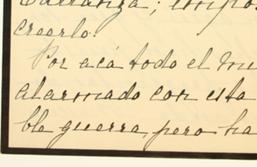 Carranza; impos
crearlo.
Por acá todo el mu
alarmado con esta
ble guerra pero ha